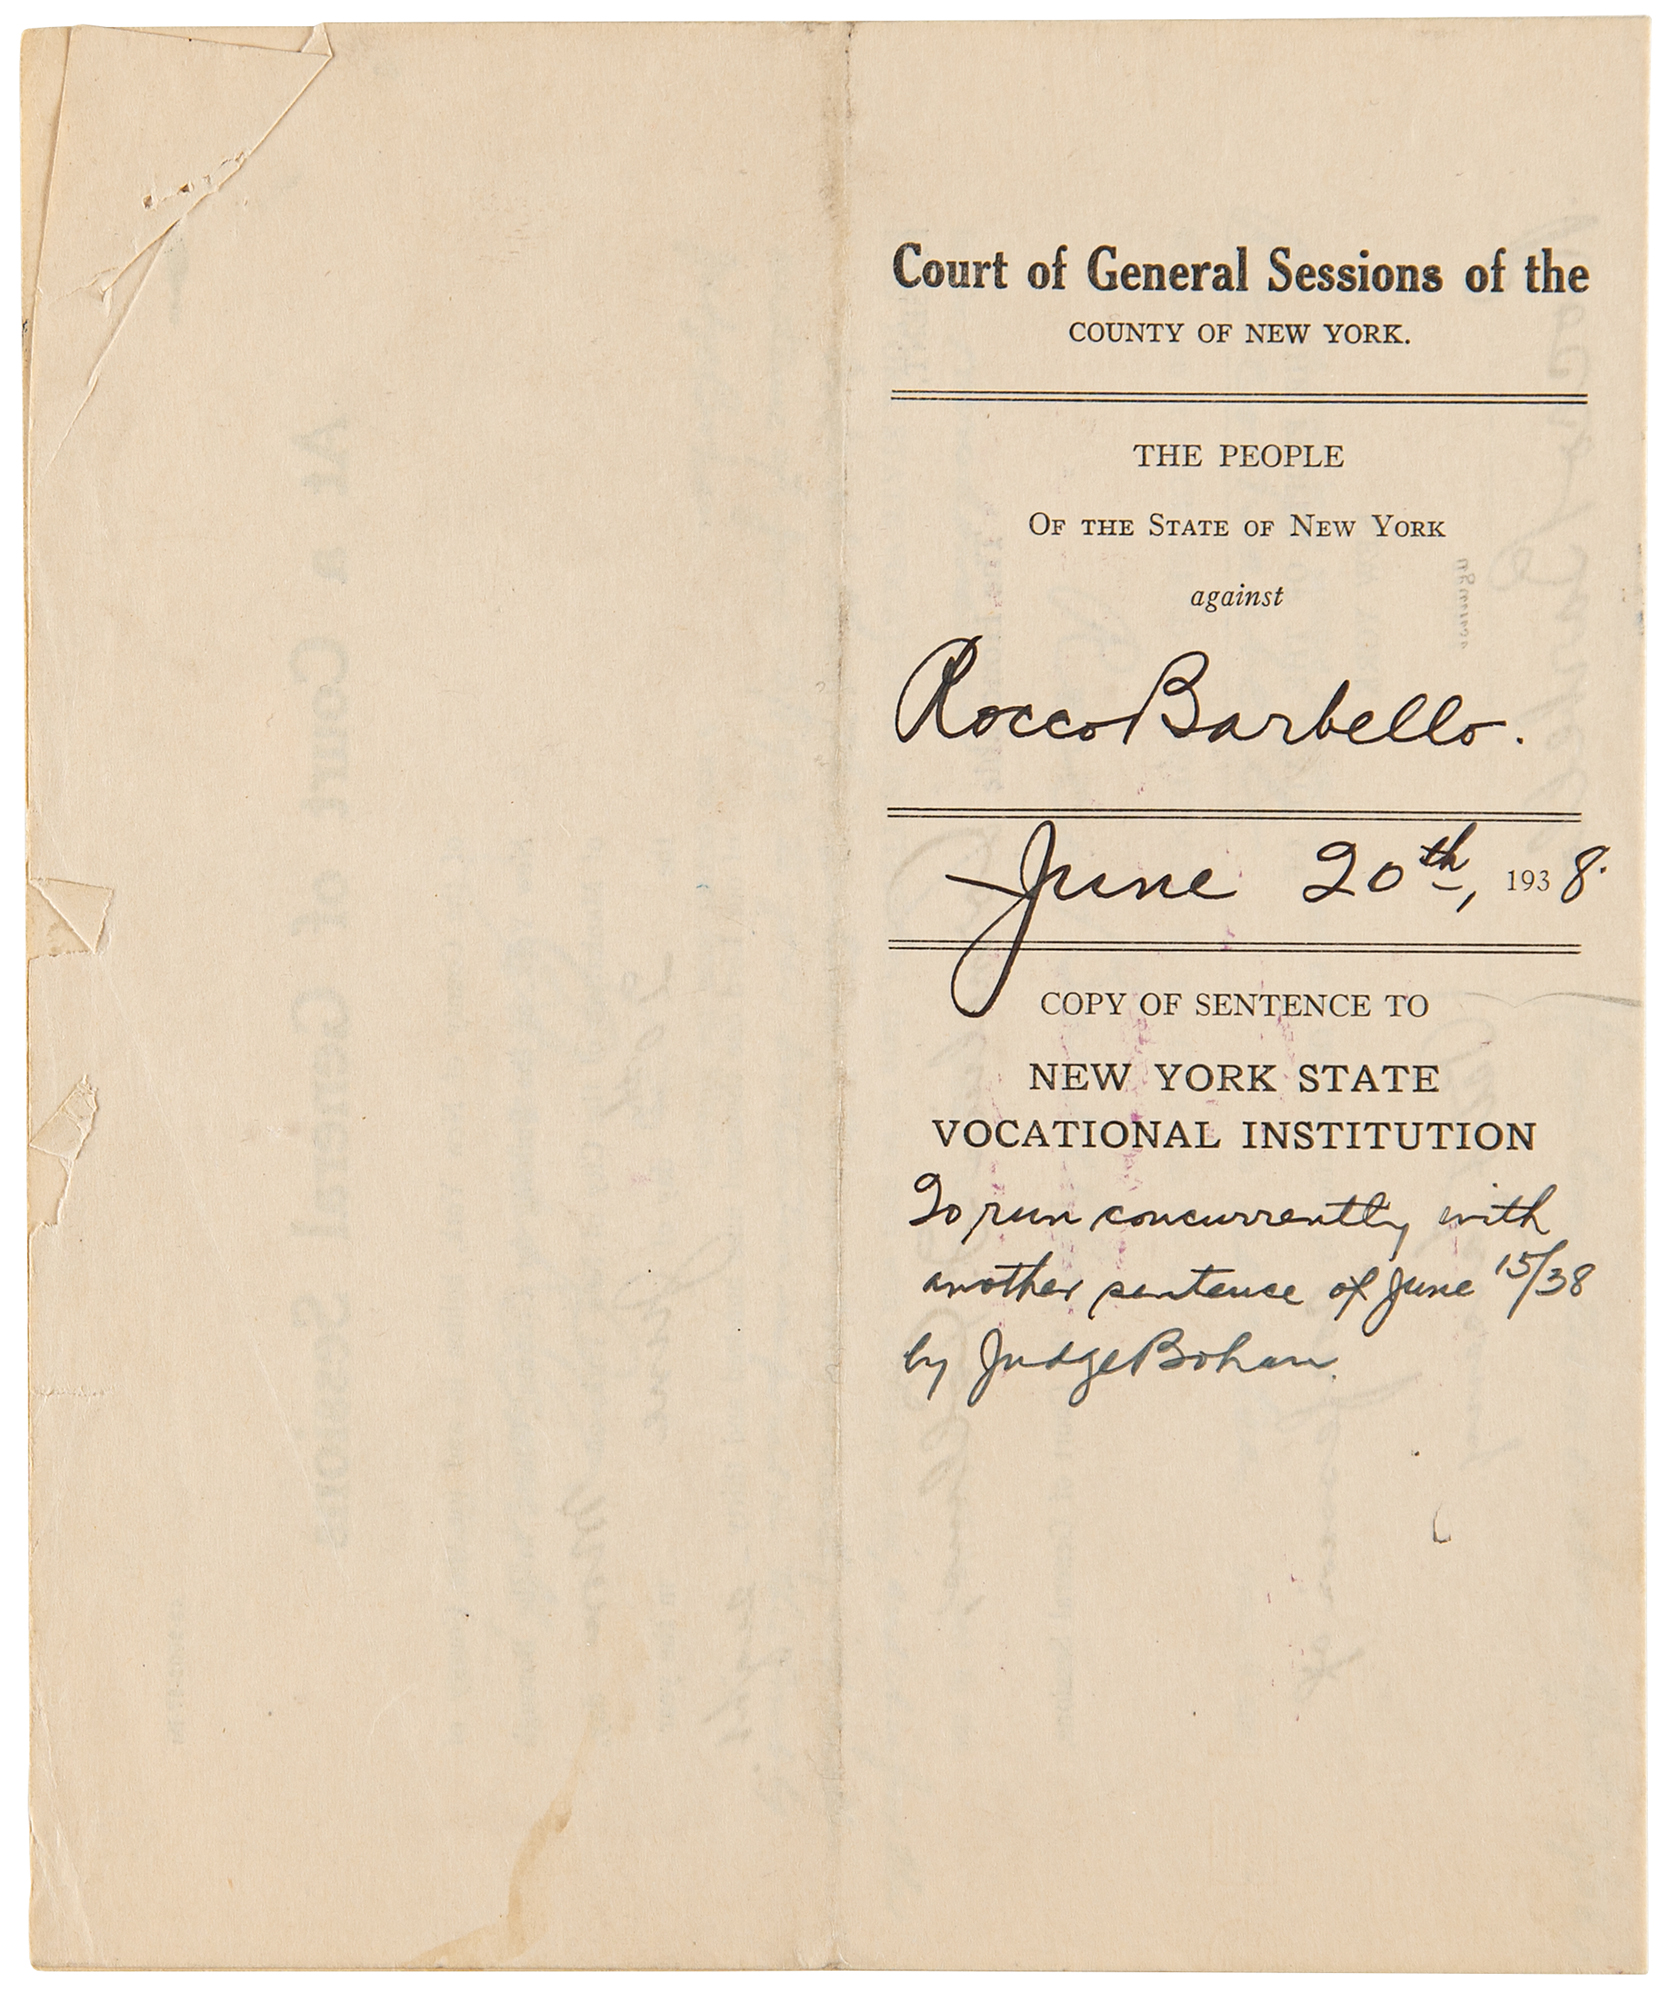 Court of General Sessions of the
COUNTY OF NEW YORK.
THE PEOPLE
OF THE STATE OF NEW YORK
against
Rocco Barbello.
June 20th, 1938.
COPY OF SENTENCE TO
NEW YORK STATE
VOCATIONAL INSTITUTION
To run concurrently with
another sentence of June 15/38
by Judge Bohan.